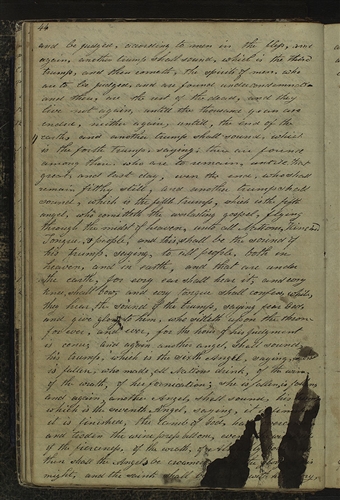 44
and be judged, according to men in the flesh, and
again, another trump shall sound, which is the third
trump, and then cometh, the spirits of men, who
are to be judged, and are found under condemnation
and these, are the rest of the dead, and they
live not again, until the thousand years are
ended, neither again, until, the end of the
earth, and another trump shall sound, which
is the forth trump, saying, there are found
among those who are to remain, until that
great, and last day, even the end, who shall
remain filthy still, and another trump shall
sound, which is the fifth trump, which is the fifth
angel, who committeth the everlasting gospel, flying
through the midst of heaven, unto all Nations,
Tongues, & people, and this shall be the sound of
his trump, saying, to all people, both in
heaven, and in earth, and that are under
the earth, for every ear shall hear it, and every
knee shall bow, and every tongue shall confess, while
they hear, the sound of the trump, saying fear God,
and give glory to him, who sitteth upon the throne
for ever, and ever, for the hour of his judgment
is come, and again another angel shall sound
his trump, which is the sixth Angel, saying,
is fallen, who made all Nations drink, of the wine
of the wrath, of her fornication, she is fallen, is fallen
and again, another Angel, shall sound, his
which is the seventh Angel, saying, it is
it is finished, the Lamb of God, hath
and trodden the wine press alone, even
of the fierceness, of the wrath, of
then shall the Angels be crowned
might, and the saints shall